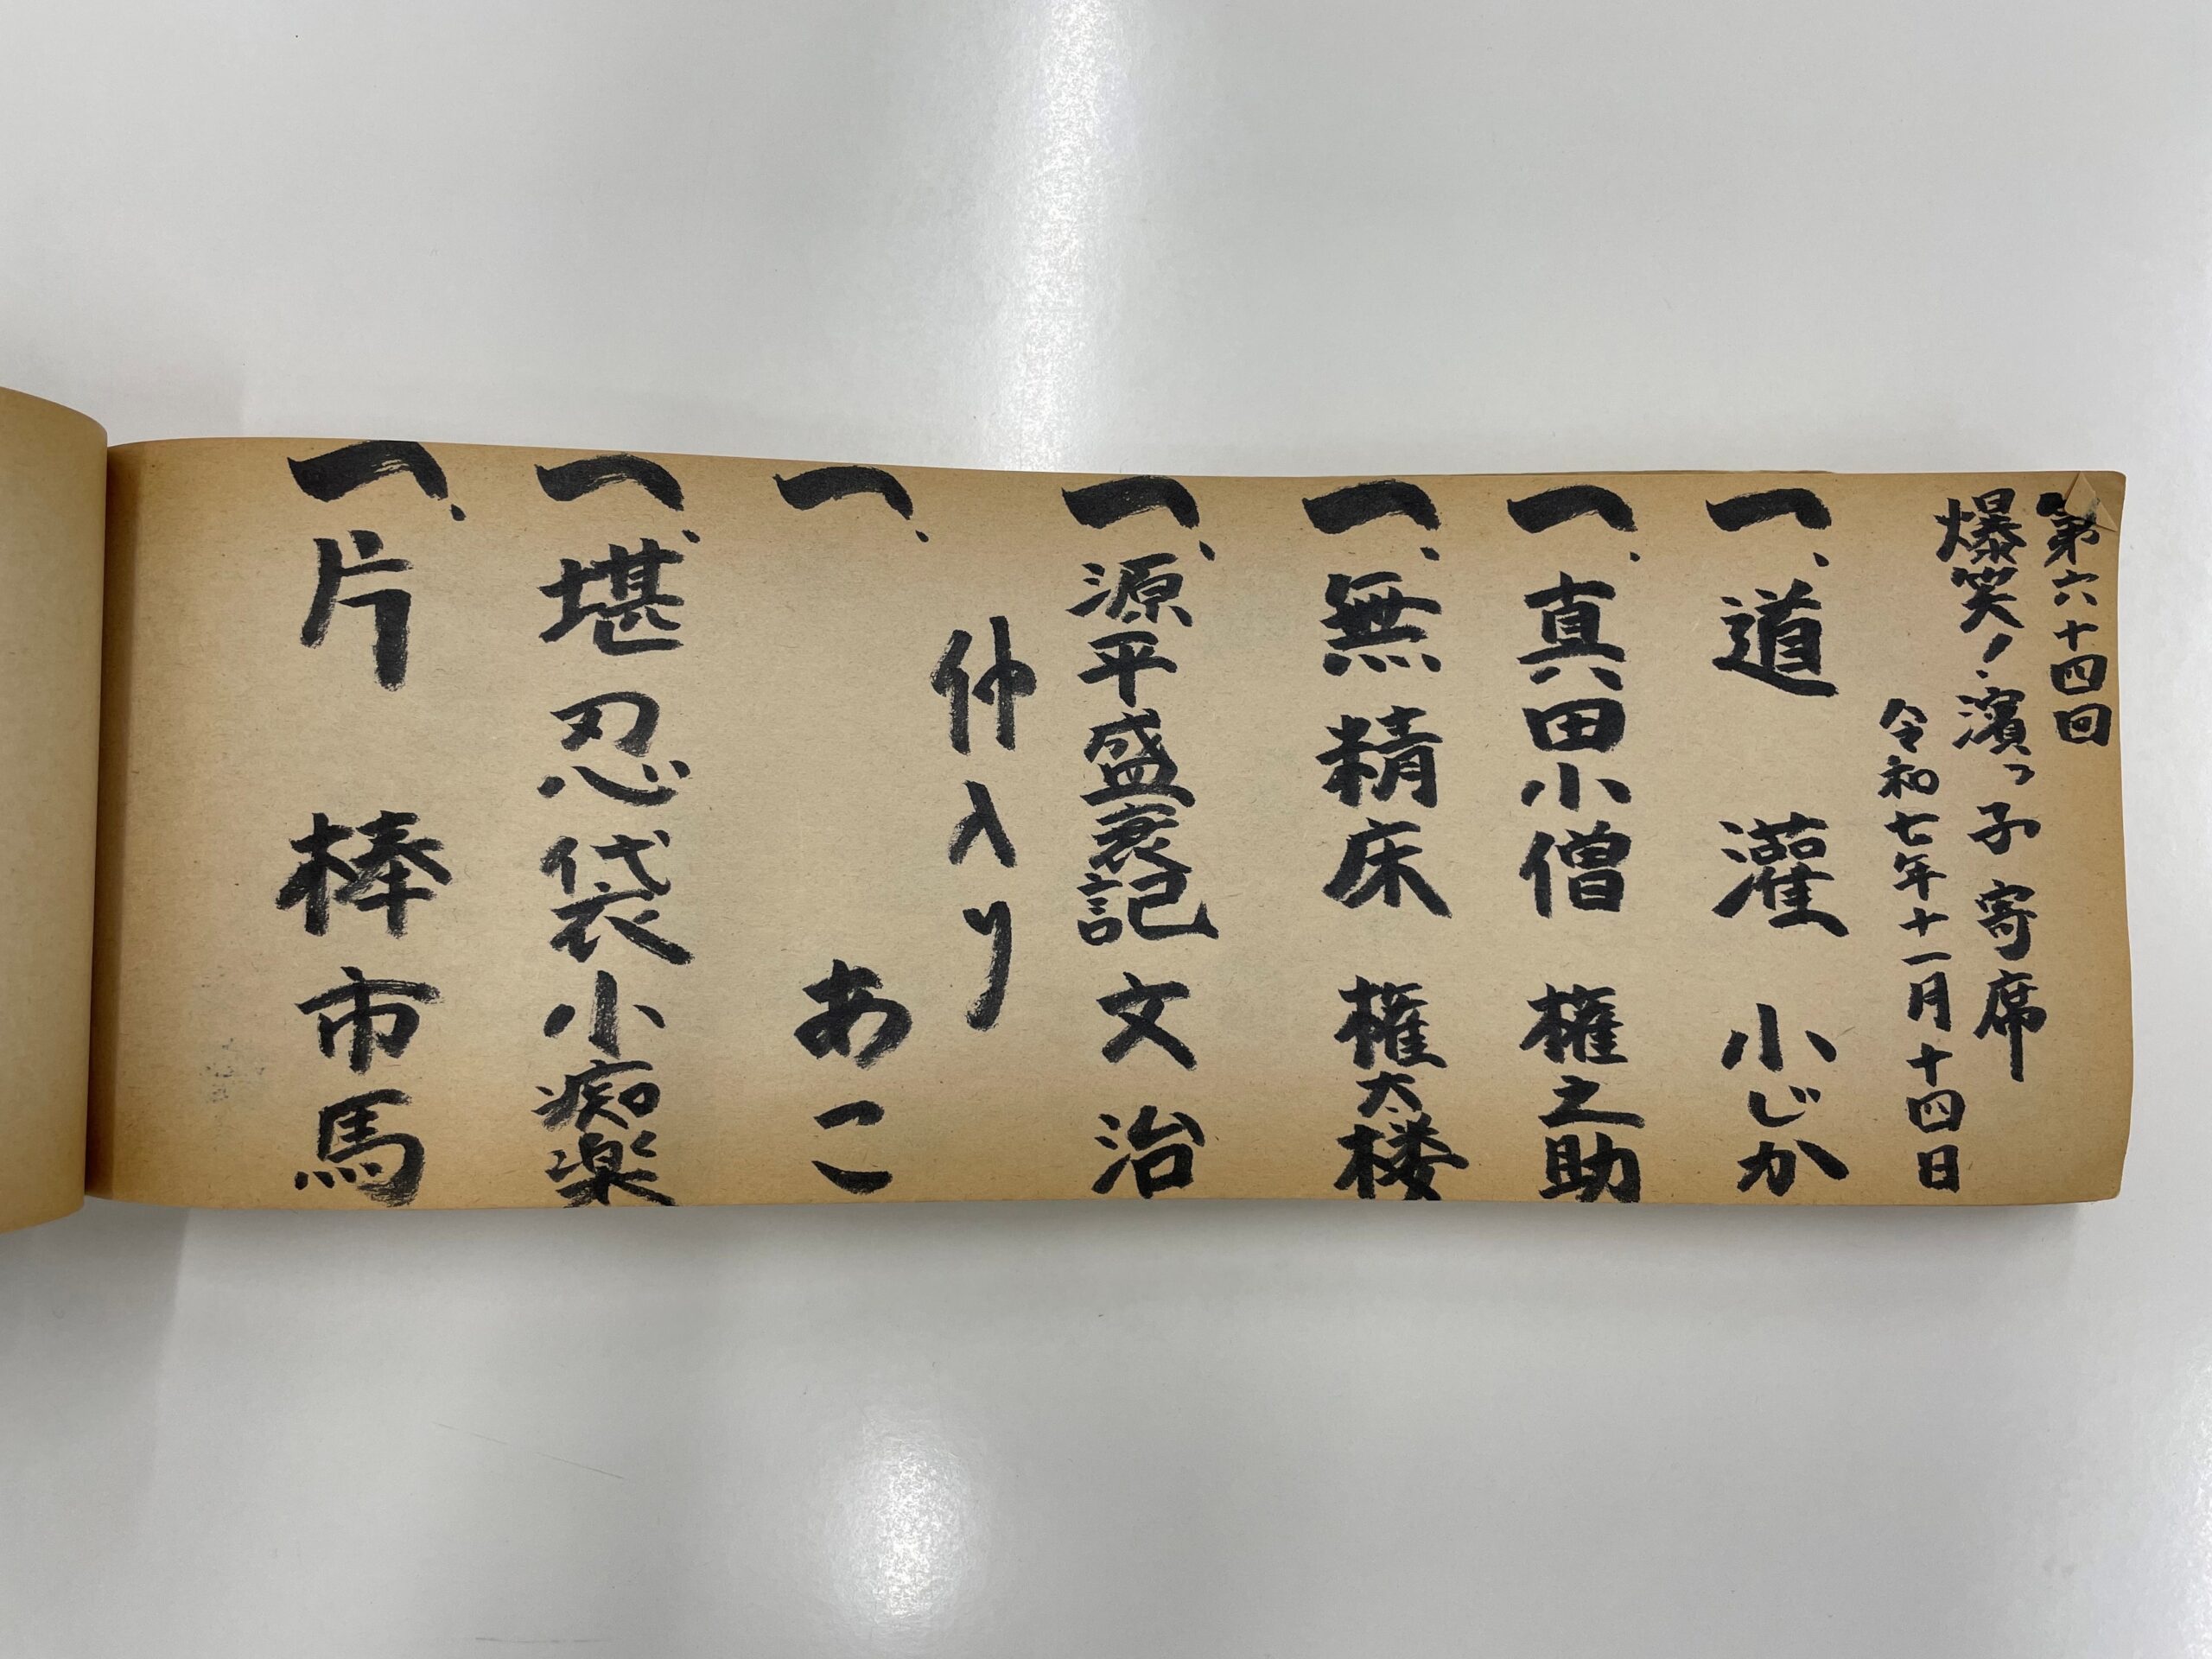 第六十四回
爆笑!濱っ子寄席
令和七年十一月十四日
一、道灌 小じか
一、真田小僧 権之助
一、無精床 権太楼
一、源平盛衰記 文治
仲入り
一、 あこ
一、堪忍袋 小痴楽
一、片棒 市馬